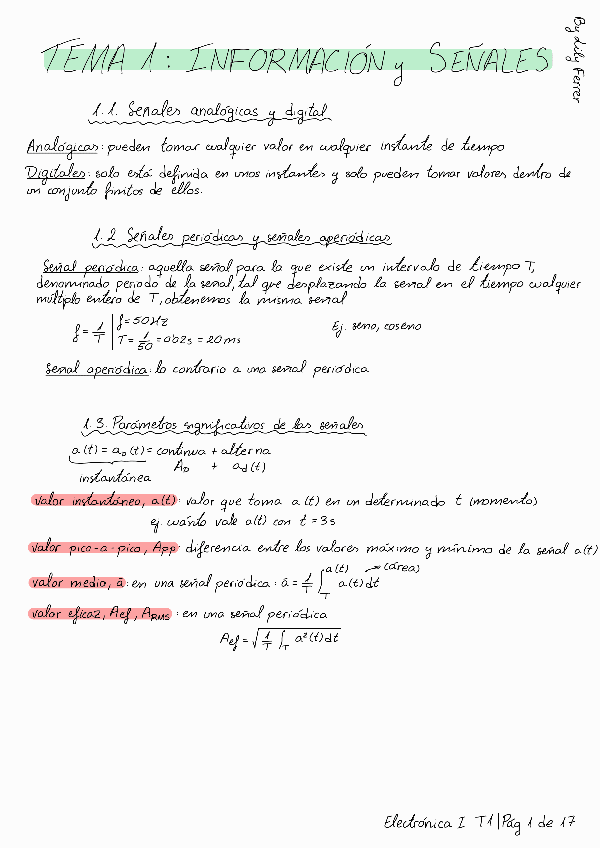 By Lily Ferrer
TEMA 1: INFORMACIÓN y SEÑALES
1.1. Señales analógicas y digital
Analógicas: pueden tomar cualquier valor en cualquier instante de tiempo
Digitales: solo está definida en unos instantes y solo pueden tomar valores dentro de
un conjunto finitos de ellos.
1.2 Señales periódicas y señales aperiódicas
Señal periódica: aquella señal para la que existe un intervalo de tiempo T,
denominado periodo de la señal, tal que desplazando la señal en el tiempo cualquier
múltiplo entero de T, obtenemos la misma señal
f = 1/T | f = 50Hz
T = 1/50 = 0'02s = 20ms
Ej. seno, coseno
Señal aperiódica: lo contrario a una señal periódica
1.3. Parámetros significativos de las señales
a(t) = a_D(t) = continua + alterna
A_D + a_d(t)
instantánea
valor instantáneo, a(t): valor que toma a(t) en un determinado t (momento)
ej. cuánto vale a(t) con t = 3s
valor pico-a-pico, App: diferencia entre los valores máximo y mínimo de la señal a(t)
valor medio, ā: en una señal periódica: ā = 1/T ∫_T a(t) dt
a(t) → (área)
valor eficaz, Aef, A_RMS: en una señal periódica
Aef = √(1/T ∫_T a²(t)dt)
Electrónica I T1|Pág 1 de 17